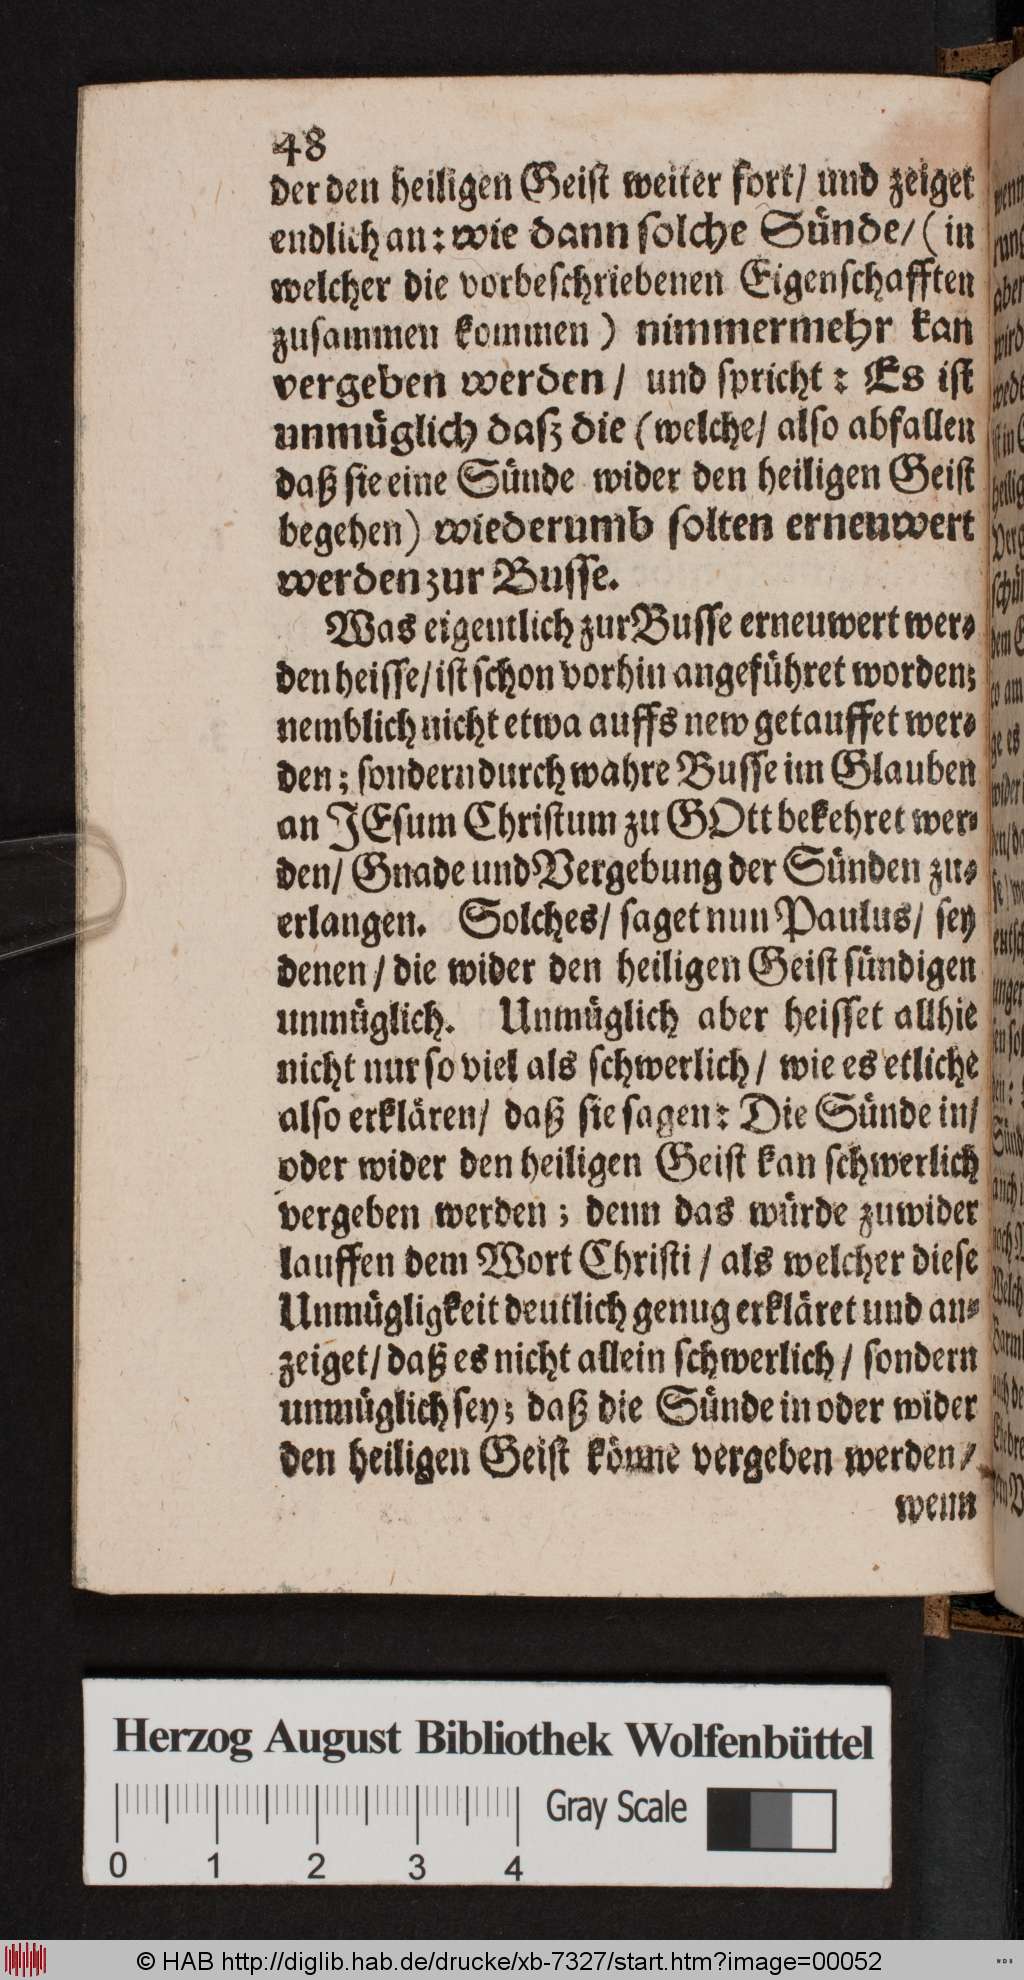 48
der den heiligen Geist weiter fort/ und zeiget
endlich an: wie dann solche Sünde/ (in
welcher die vorbeschriebenen Eigenschafften
zusammen kommen) nimmermehr kan
vergeben werden/ und spricht: Es ist
unmüglich dasz die (welche/ also abfallen
daß sie eine Sünde wider den heiligen Geist
begehen) wiederumb solten erneuwert
werden zur Busse.
Was eigentlich zur Busse erneuwert wer-
den heisse/ ist schon vorhin angeführet worden;
nemblich nicht etwa auffs new getauffet wer-
den; sondern durch wahre Busse im Glauben
an JEsum Christum zu GOtt bekehret wer-
den/ Gnade und Vergebung der Sünden zu-
erlangen. Solches/ saget nun Paulus/ sey
denen/ die wider den heiligen Geist sündigen
unmüglich. Unmüglich aber heisset allhie
nicht nur so viel als schwerlich/ wie es etliche
also erklären/ daß sie sagen: Die Sünde in/
oder wider den heiligen Geist kan schwerlich
vergeben werden; denn das würde zuwider
lauffen dem Wort Christi/ als welcher diese
Unmügligkeit deutlich genug erkläret und an-
zeiget/ daß es nicht allein schwerlich/ sondern
unmüglich sey; daß die Sünde in oder wider
den heiligen Geist könne vergeben werden/
wenn
Herzog August Bibliothek Wolfenbüttel
Gray Scale
0 1 2 3 4
© HAB http://diglib.hab.de/drucke/xb-7327/start.htm?image=00052